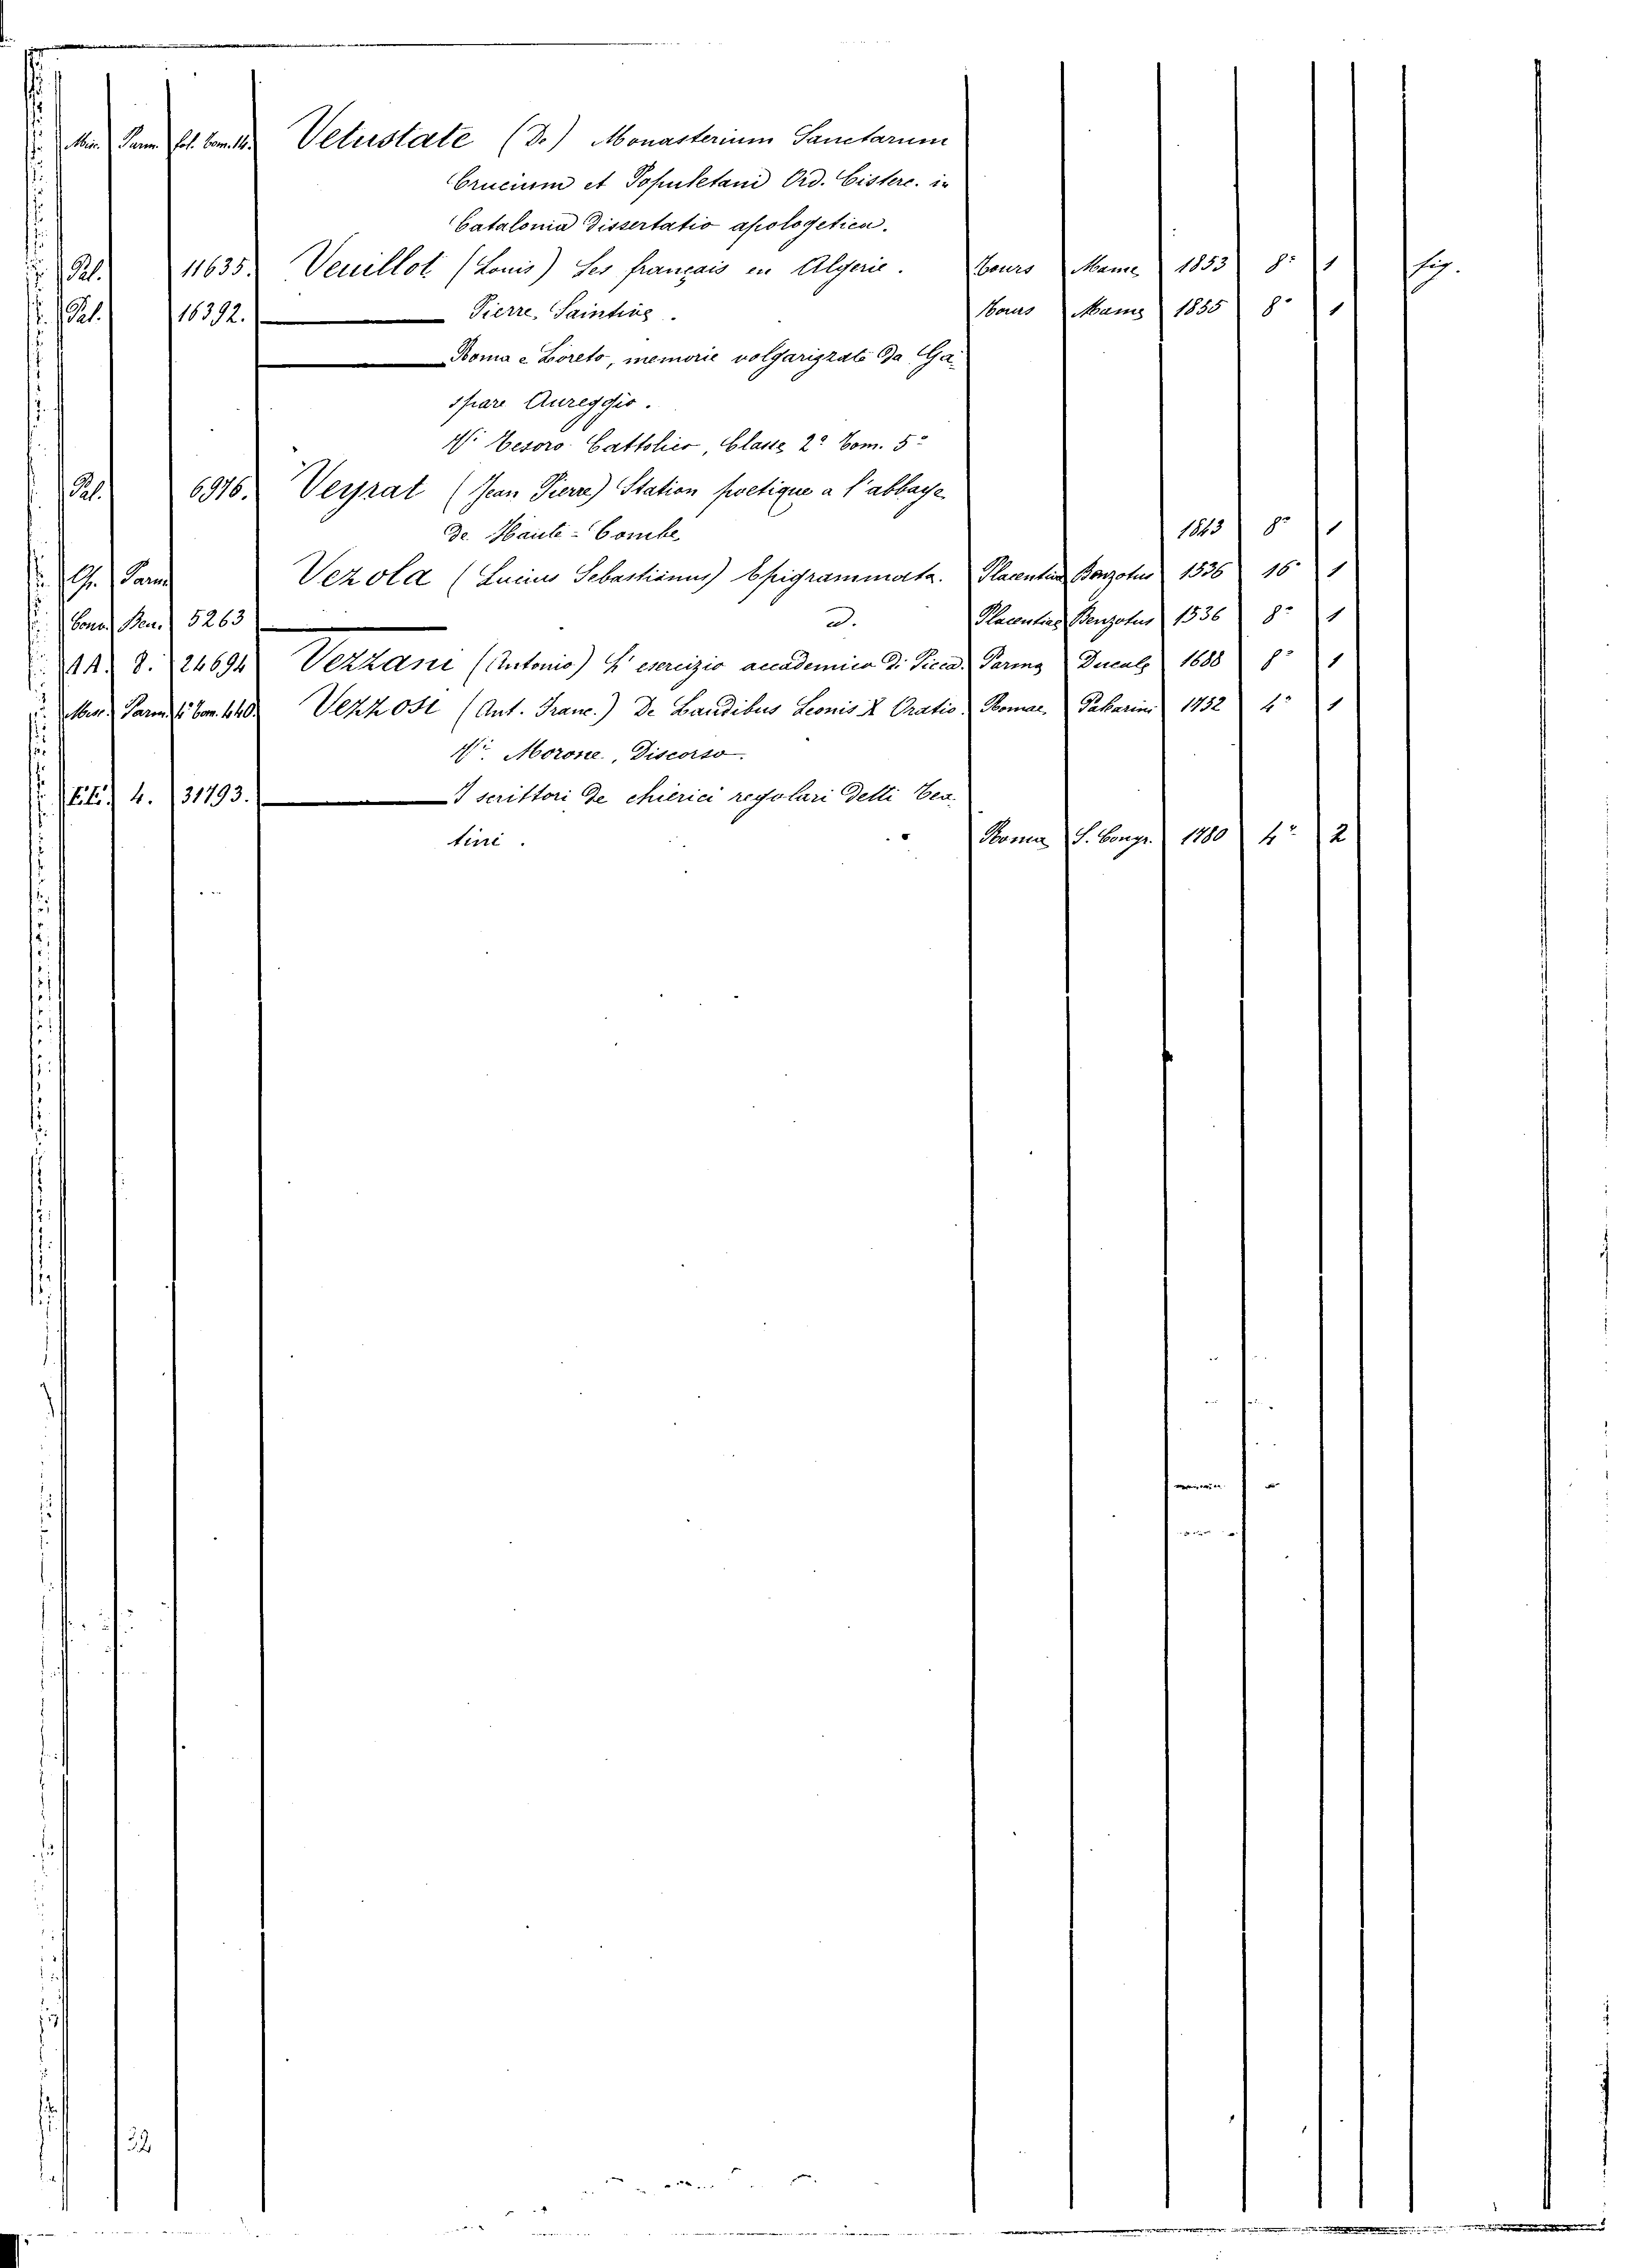 Min. Parm. fol. tom. 14. Vetustate (De) Monasterium Sanctarum
Crucium et Populetani Ord. Cisterc. in
Catalonia Dissertatio apologetica.
Pal. 11635. Veuillot (Louis) Les français en Algerie. Tours Mame 1853 8° 1 fig.
Pal. 16392. Pierre Saintive. Tours Mame 1855 8° 1
Roma e Loreto, memorie volgarizzate da Ga-
spare Aureggio.
V. Tesoro Cattolico, Classe 2a Tom. 5°
Pal. 6976. Veyrat (Jean Pierre) Station poetique a l'abbaye
de Haute-Combe 1843 8° 1
G. Parm. Vezola (Lucius Sebastianus) Epigrammata. Placentiae Benzotus 1536 16° 1
Conv. Ben. 5263 id. Placentiae Benzotus 1536 8° 1
AA. 8. 24694 Vezzani (Antonio) L'esercizio accademico di Picca. Parma Ducale 1688 8° 1
Misc. Parm. 4° tom. 440. Vezzosi (Ant. Franc.) De Laudibus Leonis X Oratio. Romae. Pakarini 1752 4° 1
V. Morone, Discorso.
4. 31793. I scrittori de chierici regolari detti Tea-
tini. Roma S. Congr. 1780 4° 2
32